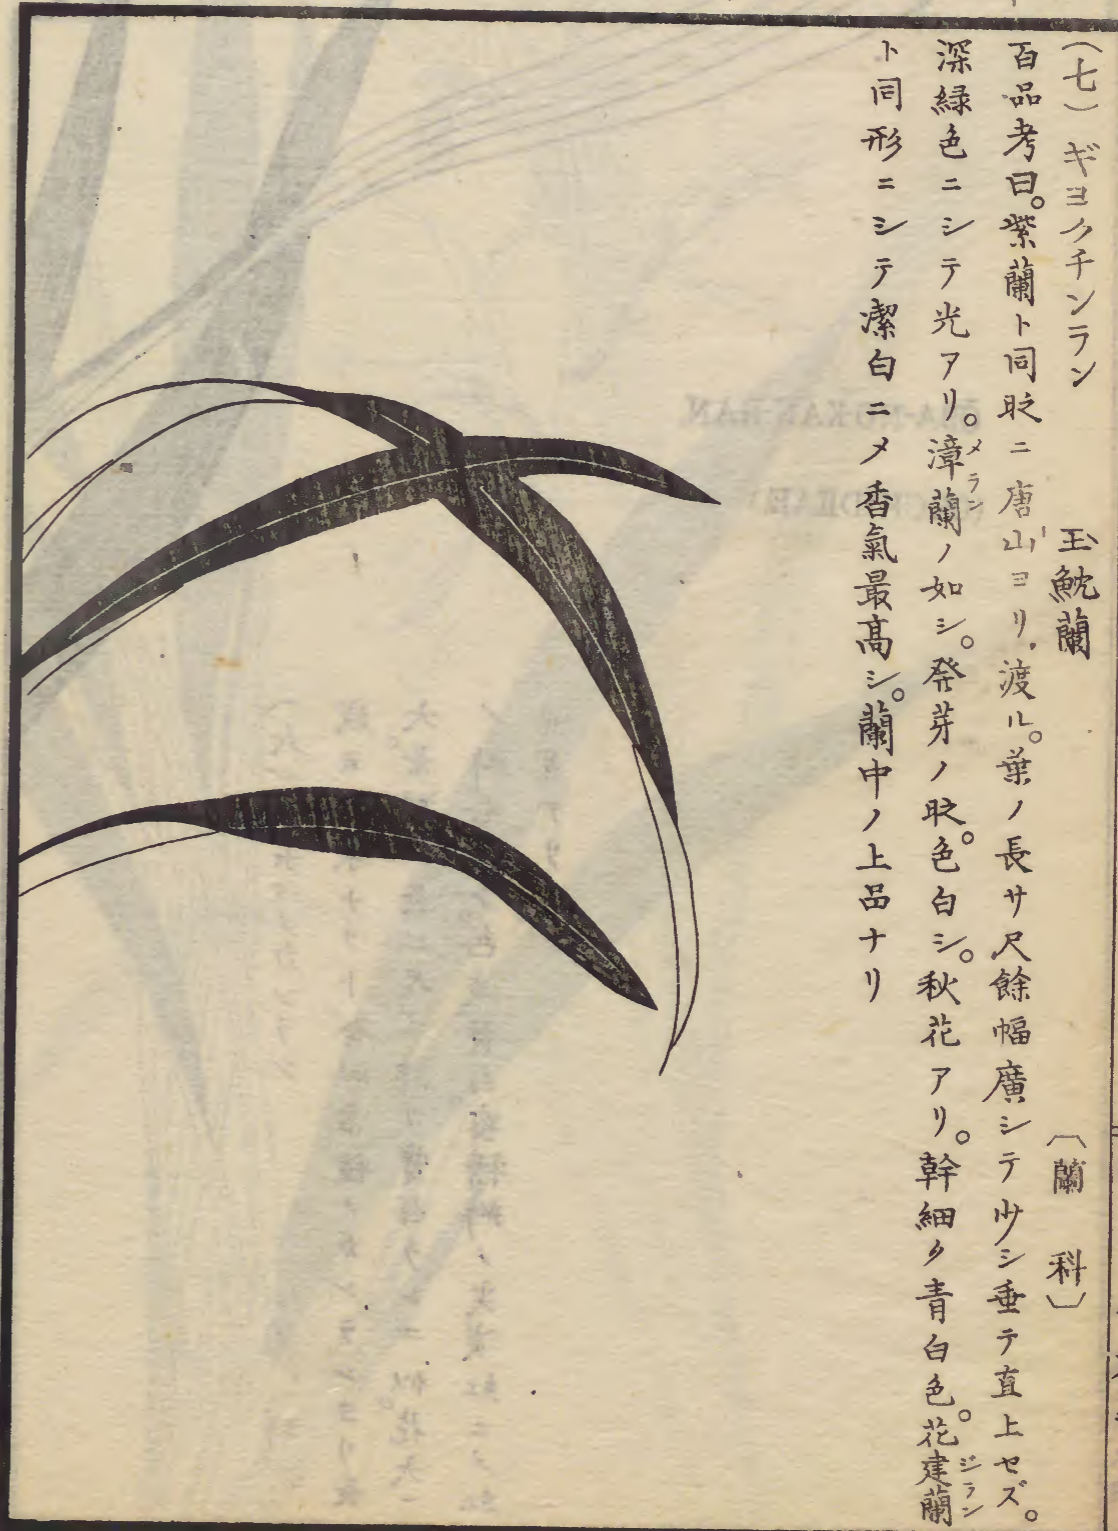 (七) ギヨクチンラン 玉魫蘭 〔蘭 科〕
百品考曰。紫蘭ト同時ニ唐山ヨリ渡ル。葉ノ長サ尺餘幅廣シテ少シ垂テ直上セズ。
深緑色ニシテ光アリ。漳蘭ノ如シ。発芽ノ時色白シ。秋花アリ。幹細ク青白色。花建蘭
メラン
ジラン
ト同形ニシテ潔白ニメ香氣最高シ。蘭中ノ上品ナリ